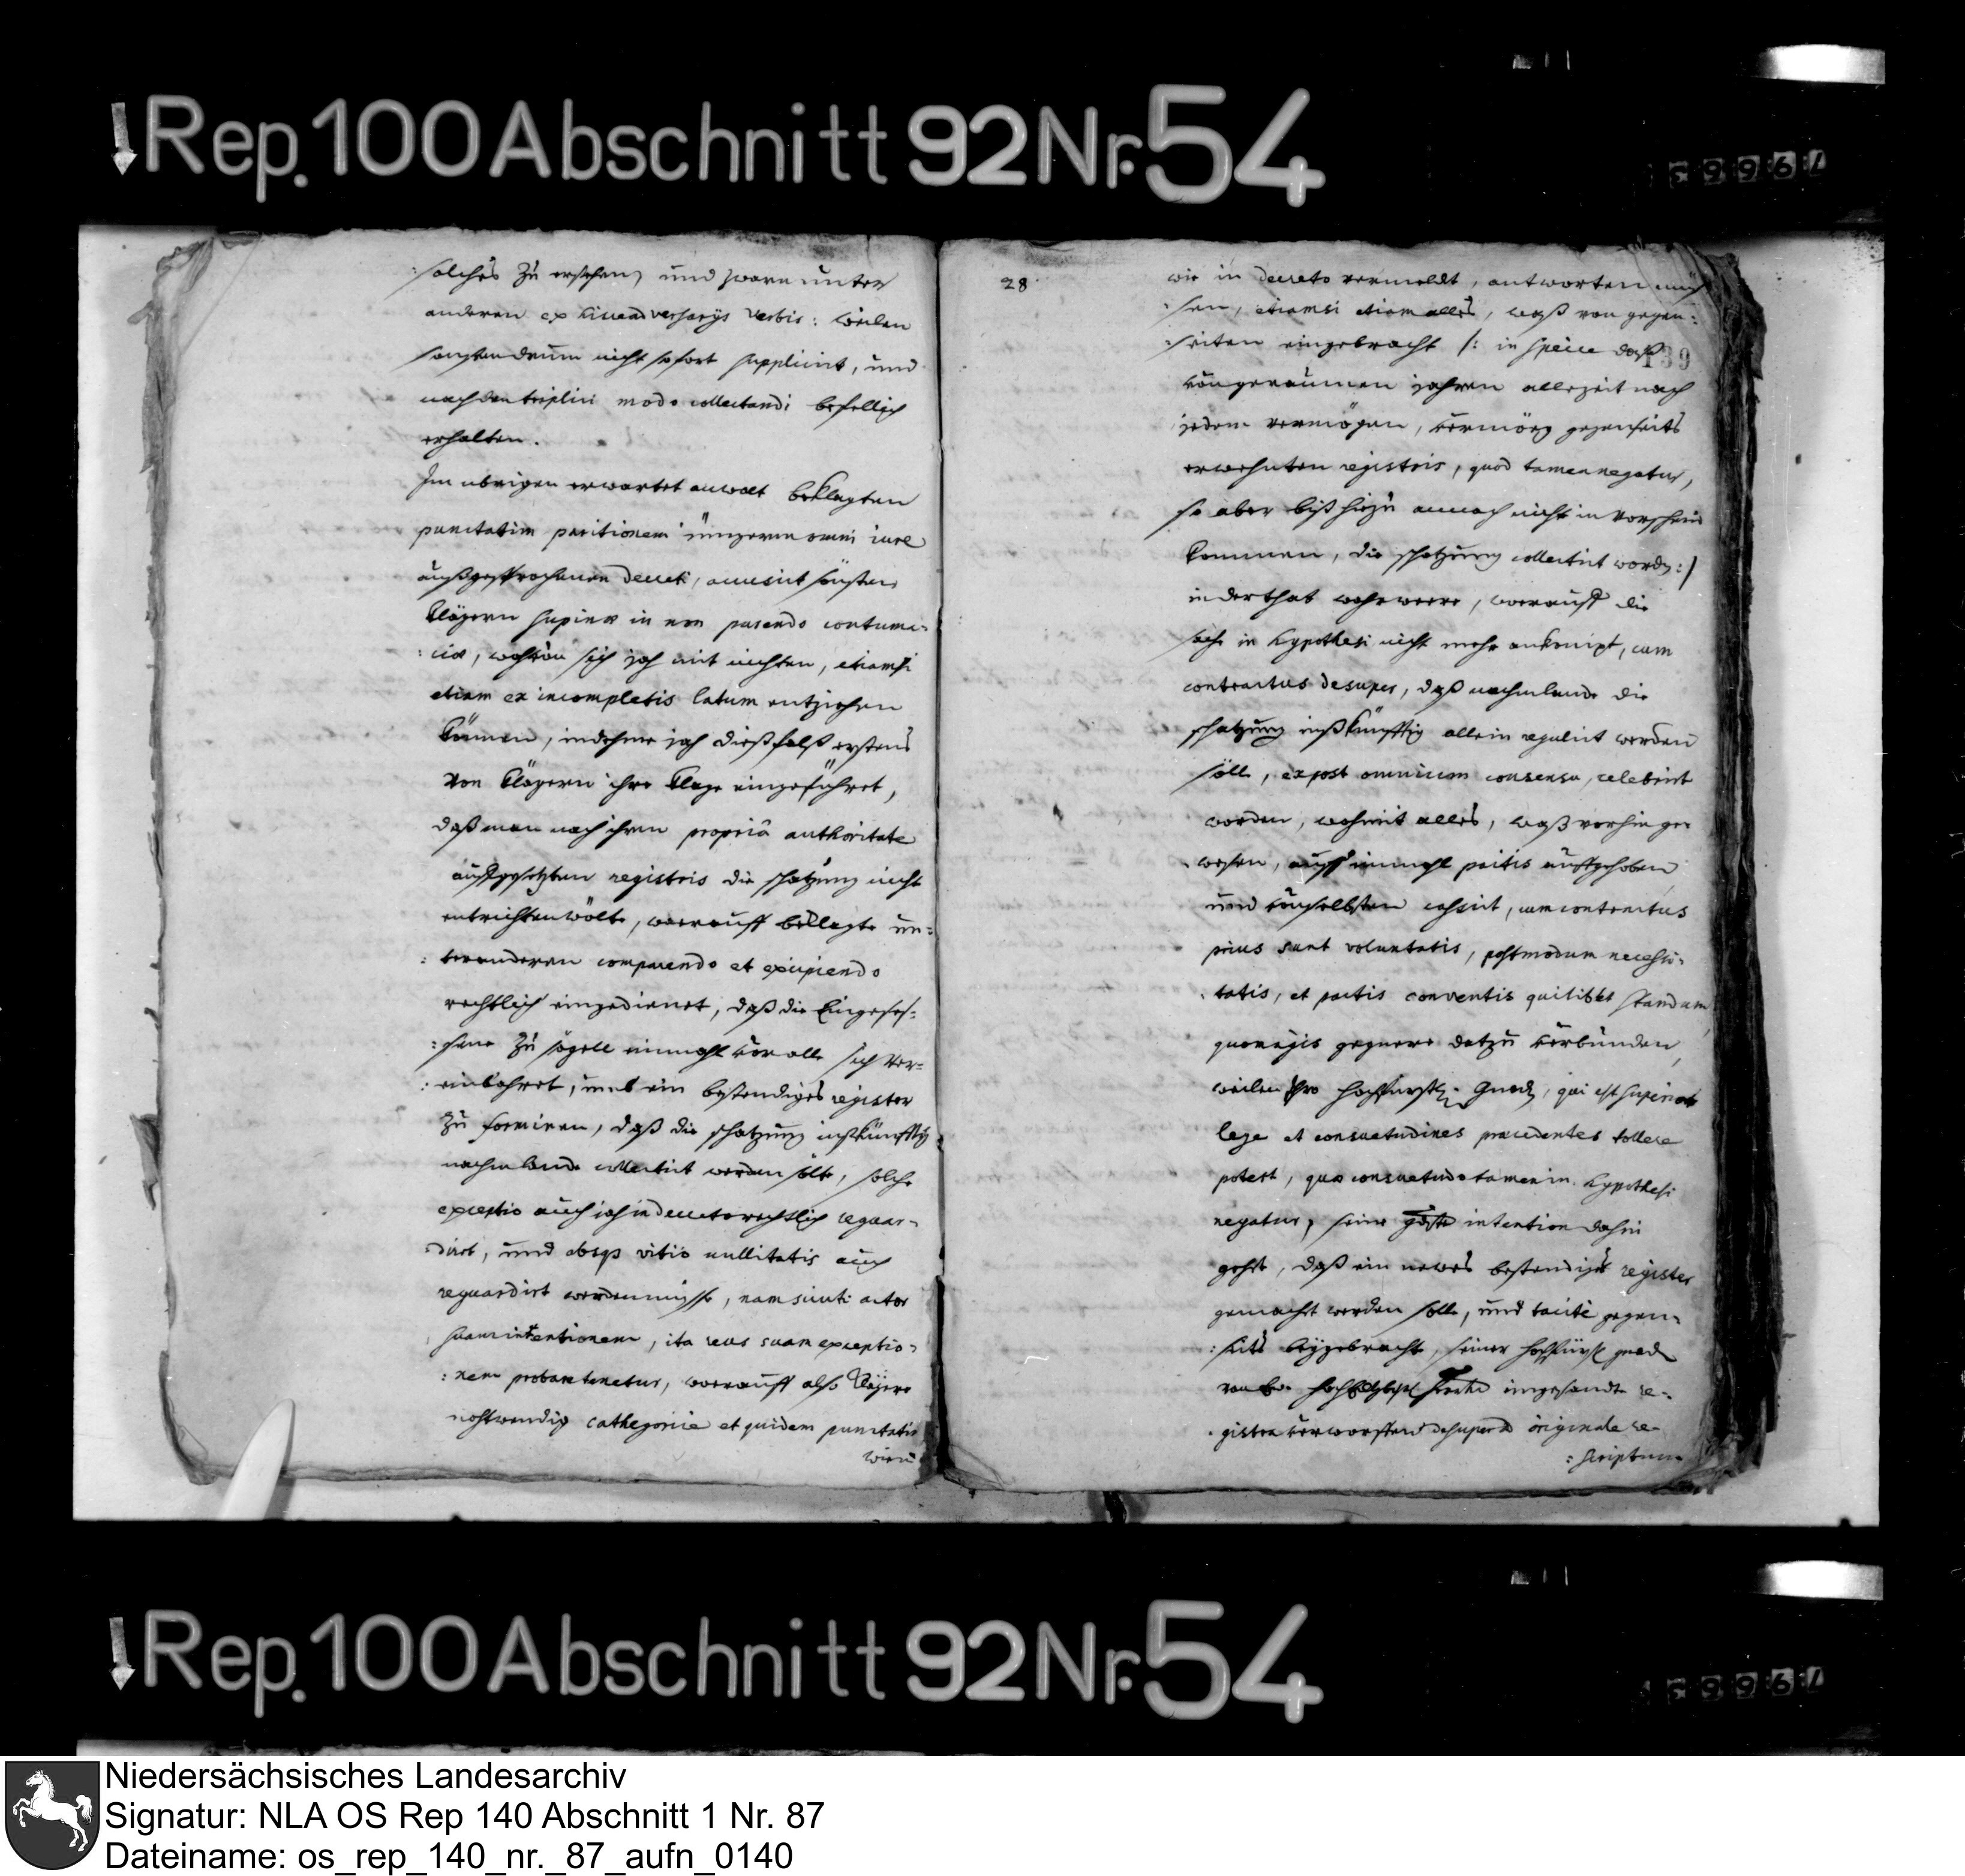 Rep. 100 Abschnitt 92 Nr. 54
solches zu ersehen, und zwarn unter
anderen ex hisce adversarijs verbis: weilen
sonsten darum nicht sofort supplicirt, und
nach den triplici modo collectandi befellich
erhalten.
Im ubrigen erwartet anwalt beklagten
punctatim paritionem
außgesprochenen decreti, accusirt sönsten
Klägern in non parendo contuma-
:cia, sich jah mit nichten, etiamsi
etiam ex incompletis latum entziehen
können, indehme jah dießfalß erstens
von Klägern ihre Klage eingeführet,
daß man nach ihren propriâ authoritate
außgesetzten registris die schatzung nicht
entrichten wolte, worauff beklagte un-
:ter anderen comparendo et excipiendo
rechtlich eingedienet, daß die Eingeses-
:sene zu sögell einmahl vor alle sich ver-
:einbahret, umb ein bestendiges register
zu formiren, daß die schatzung inßkünfftig
nach collectirt werden solte, solche
exceptio auch jah in decreto rechtlich reguar-
:dirt, und absque vitio nullitatis auch
reguardirt werden müsse, nam sicuti actor
suam intentionem, ita reus suam exceptio-
:nem probare tenetur, worauff also Klägere
nohtwendig cathegorice et quidem punctatim
28
wie in decreto vermeldt, antworten müs
:sen, etiamsi etiam alles, waß von gegen-
:seiten eingebracht /: in specie daß
139
von geraumen jahren allezeit nach
jedem vermögen, vermög gegenseits
erwehnten registris, quod tamen negatur,
so aber biß hiezu annoch nicht in vorschein
kommen, die schatzung collectirt worden :/
in der that wahr weere, worauff die
sache in hypothesi nicht mehr ankompt, cum
contractus desuper, daß die
schatzung inßkünfftig allein regulirt werden
solle, ex post omnium consensu, celebrirt
worden, wohmit alles, waß vorhin ge-
:wesen, auff einmahl pactis auffgehoben
und von selbsten cassirt, cum contractus
prius sunt voluntatis, postmodum necessi-
:tatis, et pactis conventis quilibet standum,
quomagis gegnere datzu verbunden,
weilen Ihro hochfürstl. Gnad, qui est superior
lege et consuetudines praecedentes tollere
potest, quae consuetudo tamen in hypothesi
negatur, seine gdste intention dahin
geht, daß ein newes bestendiges register
gemacht werden solle, und tacitè gegen-
:seits beygebracht, seiner hochfürstl gnad
von ingesandte re-
:gistra verworffen desuper originale re-
:scriptum
Rep. 100 Abschnitt 92 Nr. 54
Niedersächsisches Landesarchiv
Signatur: NLA OS Rep 140 Abschnitt 1 Nr. 87
Dateiname: os_rep_140_nr._87_aufn_0140